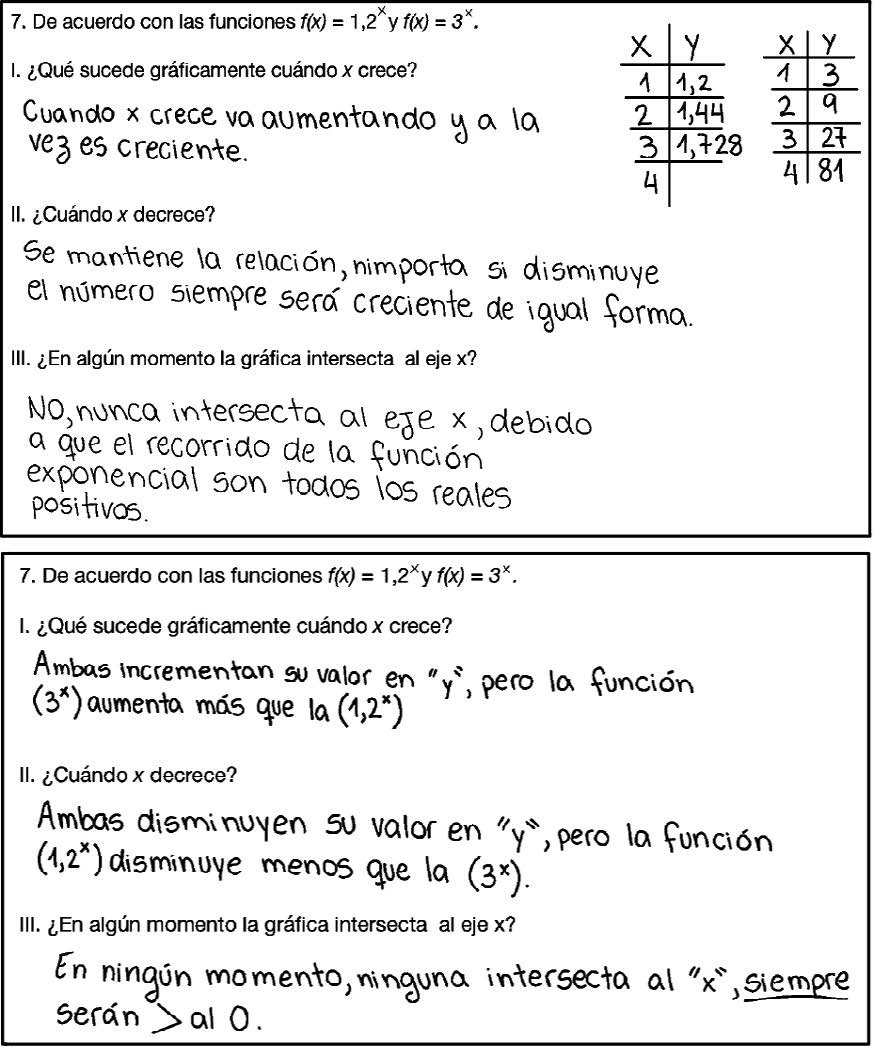 7. De acuerdo con las funciones f(x) = 1,2ˣ y f(x) = 3ˣ.
I. ¿Qué sucede gráficamente cuándo x crece?
Cuando x crece va aumentando y a la
vez es creciente.
X | Y
1 | 1,2
2 | 1,44
3 | 1,728
4 |
X | Y
1 | 3
2 | 9
3 | 27
4 | 81
II. ¿Cuándo x decrece?
Se mantiene la relación, nimporta si disminuye
el número siempre será creciente de igual forma.
III. ¿En algún momento la gráfica intersecta al eje x?
NO, nunca intersecta al eje x, debido
a que el recorrido de la función
exponencial son todos los reales
positivos.
7. De acuerdo con las funciones f(x) = 1,2ˣ y f(x) = 3ˣ.
I. ¿Qué sucede gráficamente cuándo x crece?
Ambas incrementan su valor en "y", pero la función
(3ˣ) aumenta más que la (1,2ˣ)
II. ¿Cuándo x decrece?
Ambas disminuyen su valor en "y", pero la función
(1,2ˣ) disminuye menos que la (3ˣ).
III. ¿En algún momento la gráfica intersecta al eje x?
En ningún momento, ninguna intersecta al "x", siempre
serán > al 0.